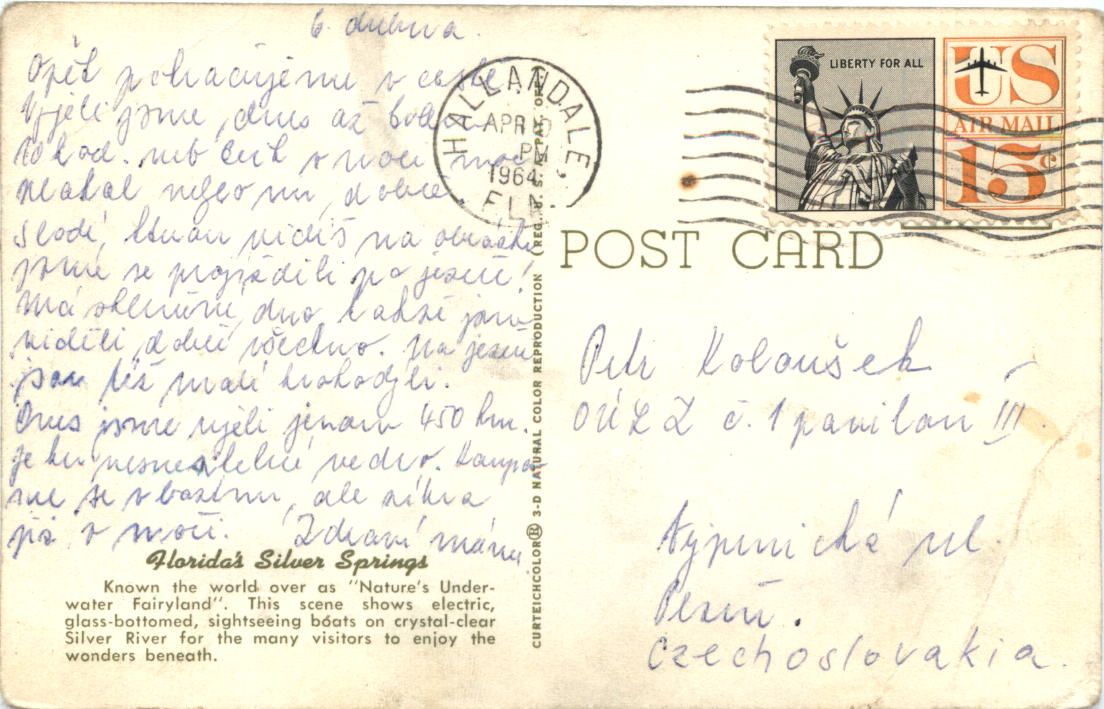 6. dubna.
Opět pokračujeme v cestě
Vyjeli jsme dnes až
v noci
dobře
Lodí, kterou vidíš na obrázku
jsme se projížděli po jezeře.
Má skleněné dno takže jsme
viděli dobře všechno. Na jezeře
jsou též malé krokodýli.
Dnes jsme ujeli jenom 450 km.
Je tu nesnesitelné vedro. Koupali
sme se v bazénu, ale zítra
již v moři. Zdraví máma
Florida's Silver Springs
Known the world over as "Nature's Under-
water Fairyland". This scene shows electric,
glass-bottomed, sightseeing boats on crystal-clear
Silver River for the many visitors to enjoy the
wonders beneath.
CURTEICHCOLOR® 3-D NATURAL COLOR REPRODUCTION (REG. U.S.A. PAT. OFF.)
HALLANDALE,
APR
PM
1964
FLA.
LIBERTY FOR ALL
US
AIR MAIL
15¢
POST CARD
Petr Koloušek
OÚZZ č. 1 pavilon III
ul.
Plzeň.
Czechoslovakia.